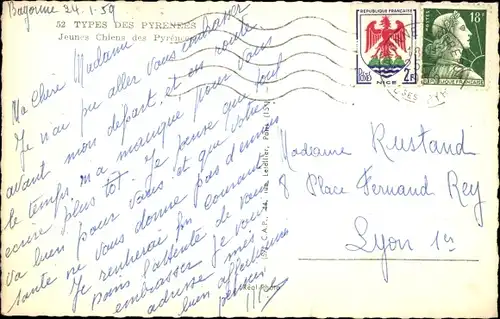 Bayonne 24.1.59
52 TYPES DES PYRENEES
Jeunes Chiens des Pyrénées
Ma Chère Madame
Je n'ai pu aller vous embrasser
avant mon départ, et en route
le temps m'a manqué pour vous
écrire plus tôt. Je pense que tout
va bien pour vous et que votre
santé ne vous donne pas d'ennuis
Je rentrerai fin courant
dans l'attente de vous
embrasser je vous
adresse mes
bien affectueuses
pensées
REPUBLIQUE FRANÇAISE
2F
NICE
POSTES
18F
REPUBLIQUE FRANÇAISE
Madame Rustand
8 Place Fernand Rey
Lyon 1er
C.A.P., rue Letellier, Paris
Réel Photo